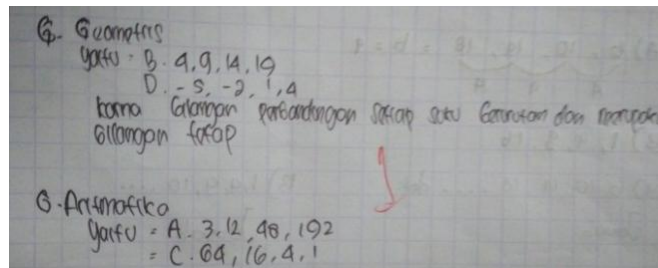 G. Guametris
yaitu = B. 4, 9, 14, 19
D. -5, -2, 1, 4
karna bilangan perbandingan setiap suku berurutan dan merupak
bilangan tetap
G. Aritmatika
yaitu = A. 3, 12, 48, 192
= C. 64, 16, 4, 1